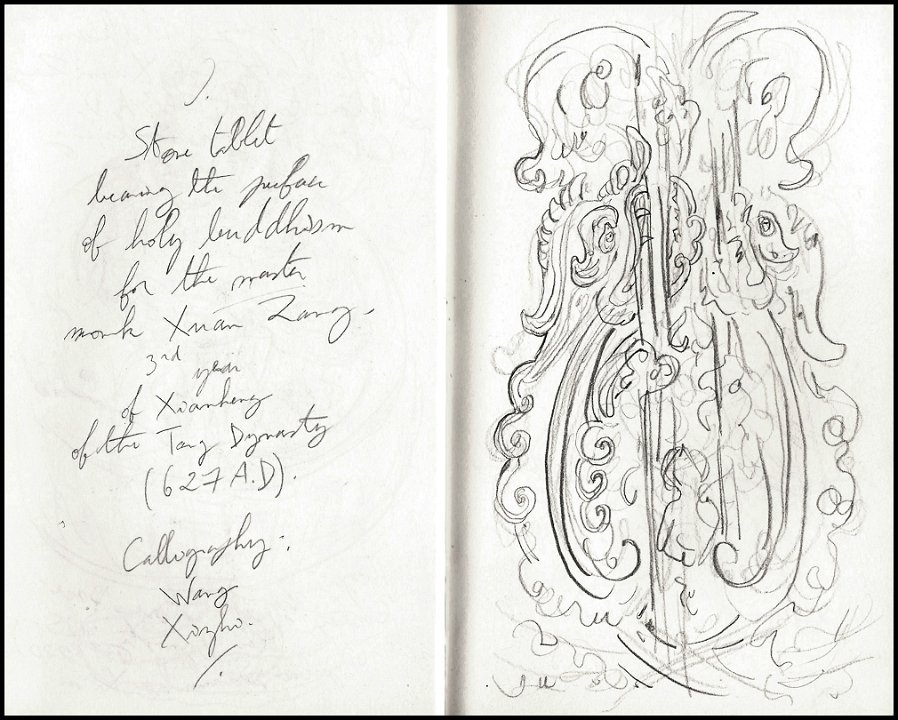 Stone tablet
bearing the preface
of holy buddhism
for the master
monk Xuan Zang.
3rd year
of Xianheng
of the Tang Dynasty
(627 A.D).
Calligraphy:
Wang